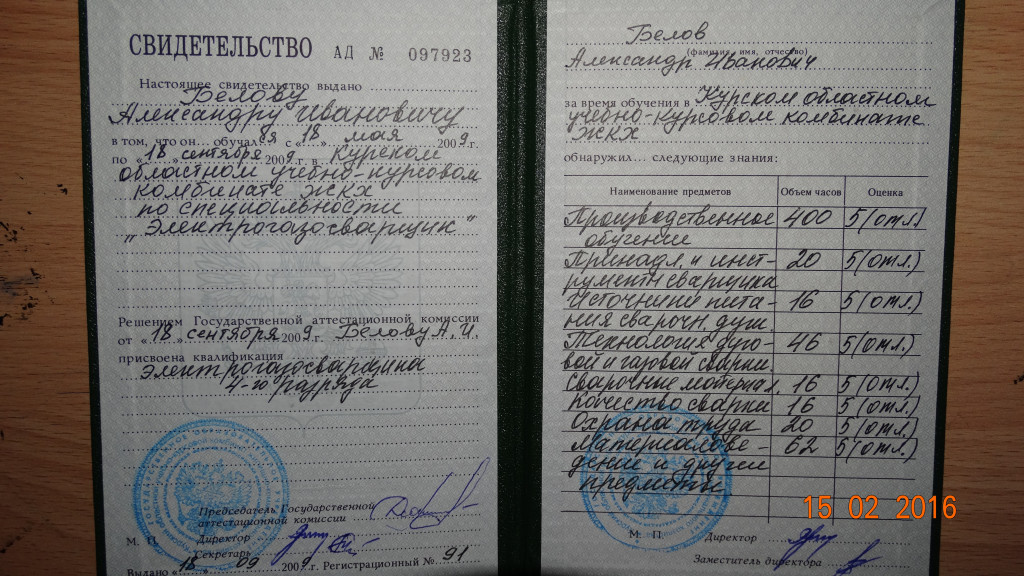 СВИДЕТЕЛЬСТВО АД № 097923
Настоящее свидетельство выдано
Белову
Александру Ивановичу
в том, что он... обучал..ся с «18» мая 2009.г.
по «18» сентября 2009 г. в Курском
областном учебно-курсовом
комбинате ЖКХ
по специальности
"Электрогазосварщик"
Решением Государственной аттестационной комиссии
от «18» сентября 2009. г. Белову А.И.
присвоена квалификация
Электрогазосварщика
4-го разряда
Председатель Государственной
аттестационной комиссии
М. П. Директор
Секретарь
Выдано «18» 09 2009. г. Регистрационный № 91
Белов
(фамилия, имя, отчество)
Александр Иванович
за время обучения в Курском областном
учебно-курсовом комбинате
ЖКХ
обнаружил... следующие знания:
Наименование предметов Объем часов Оценка
Производственное 400 5 (отл.)
обучение
Принадл. и инст- 20 5 (отл.)
рументы сварщика
Источники пита- 16 5 (отл.)
ния сварочн. дуги.
Технология дуго- 46 5 (отл.)
вой и газовой сварки.
Сварочные материал. 16 5 (отл.)
Качество сварки 16 5 (отл.)
Охрана труда 20 5 (отл.)
Материалове- 62 5 (отл.)
дение и другие
предметы
М. П. Директор
Заместитель директора
15 02 2016